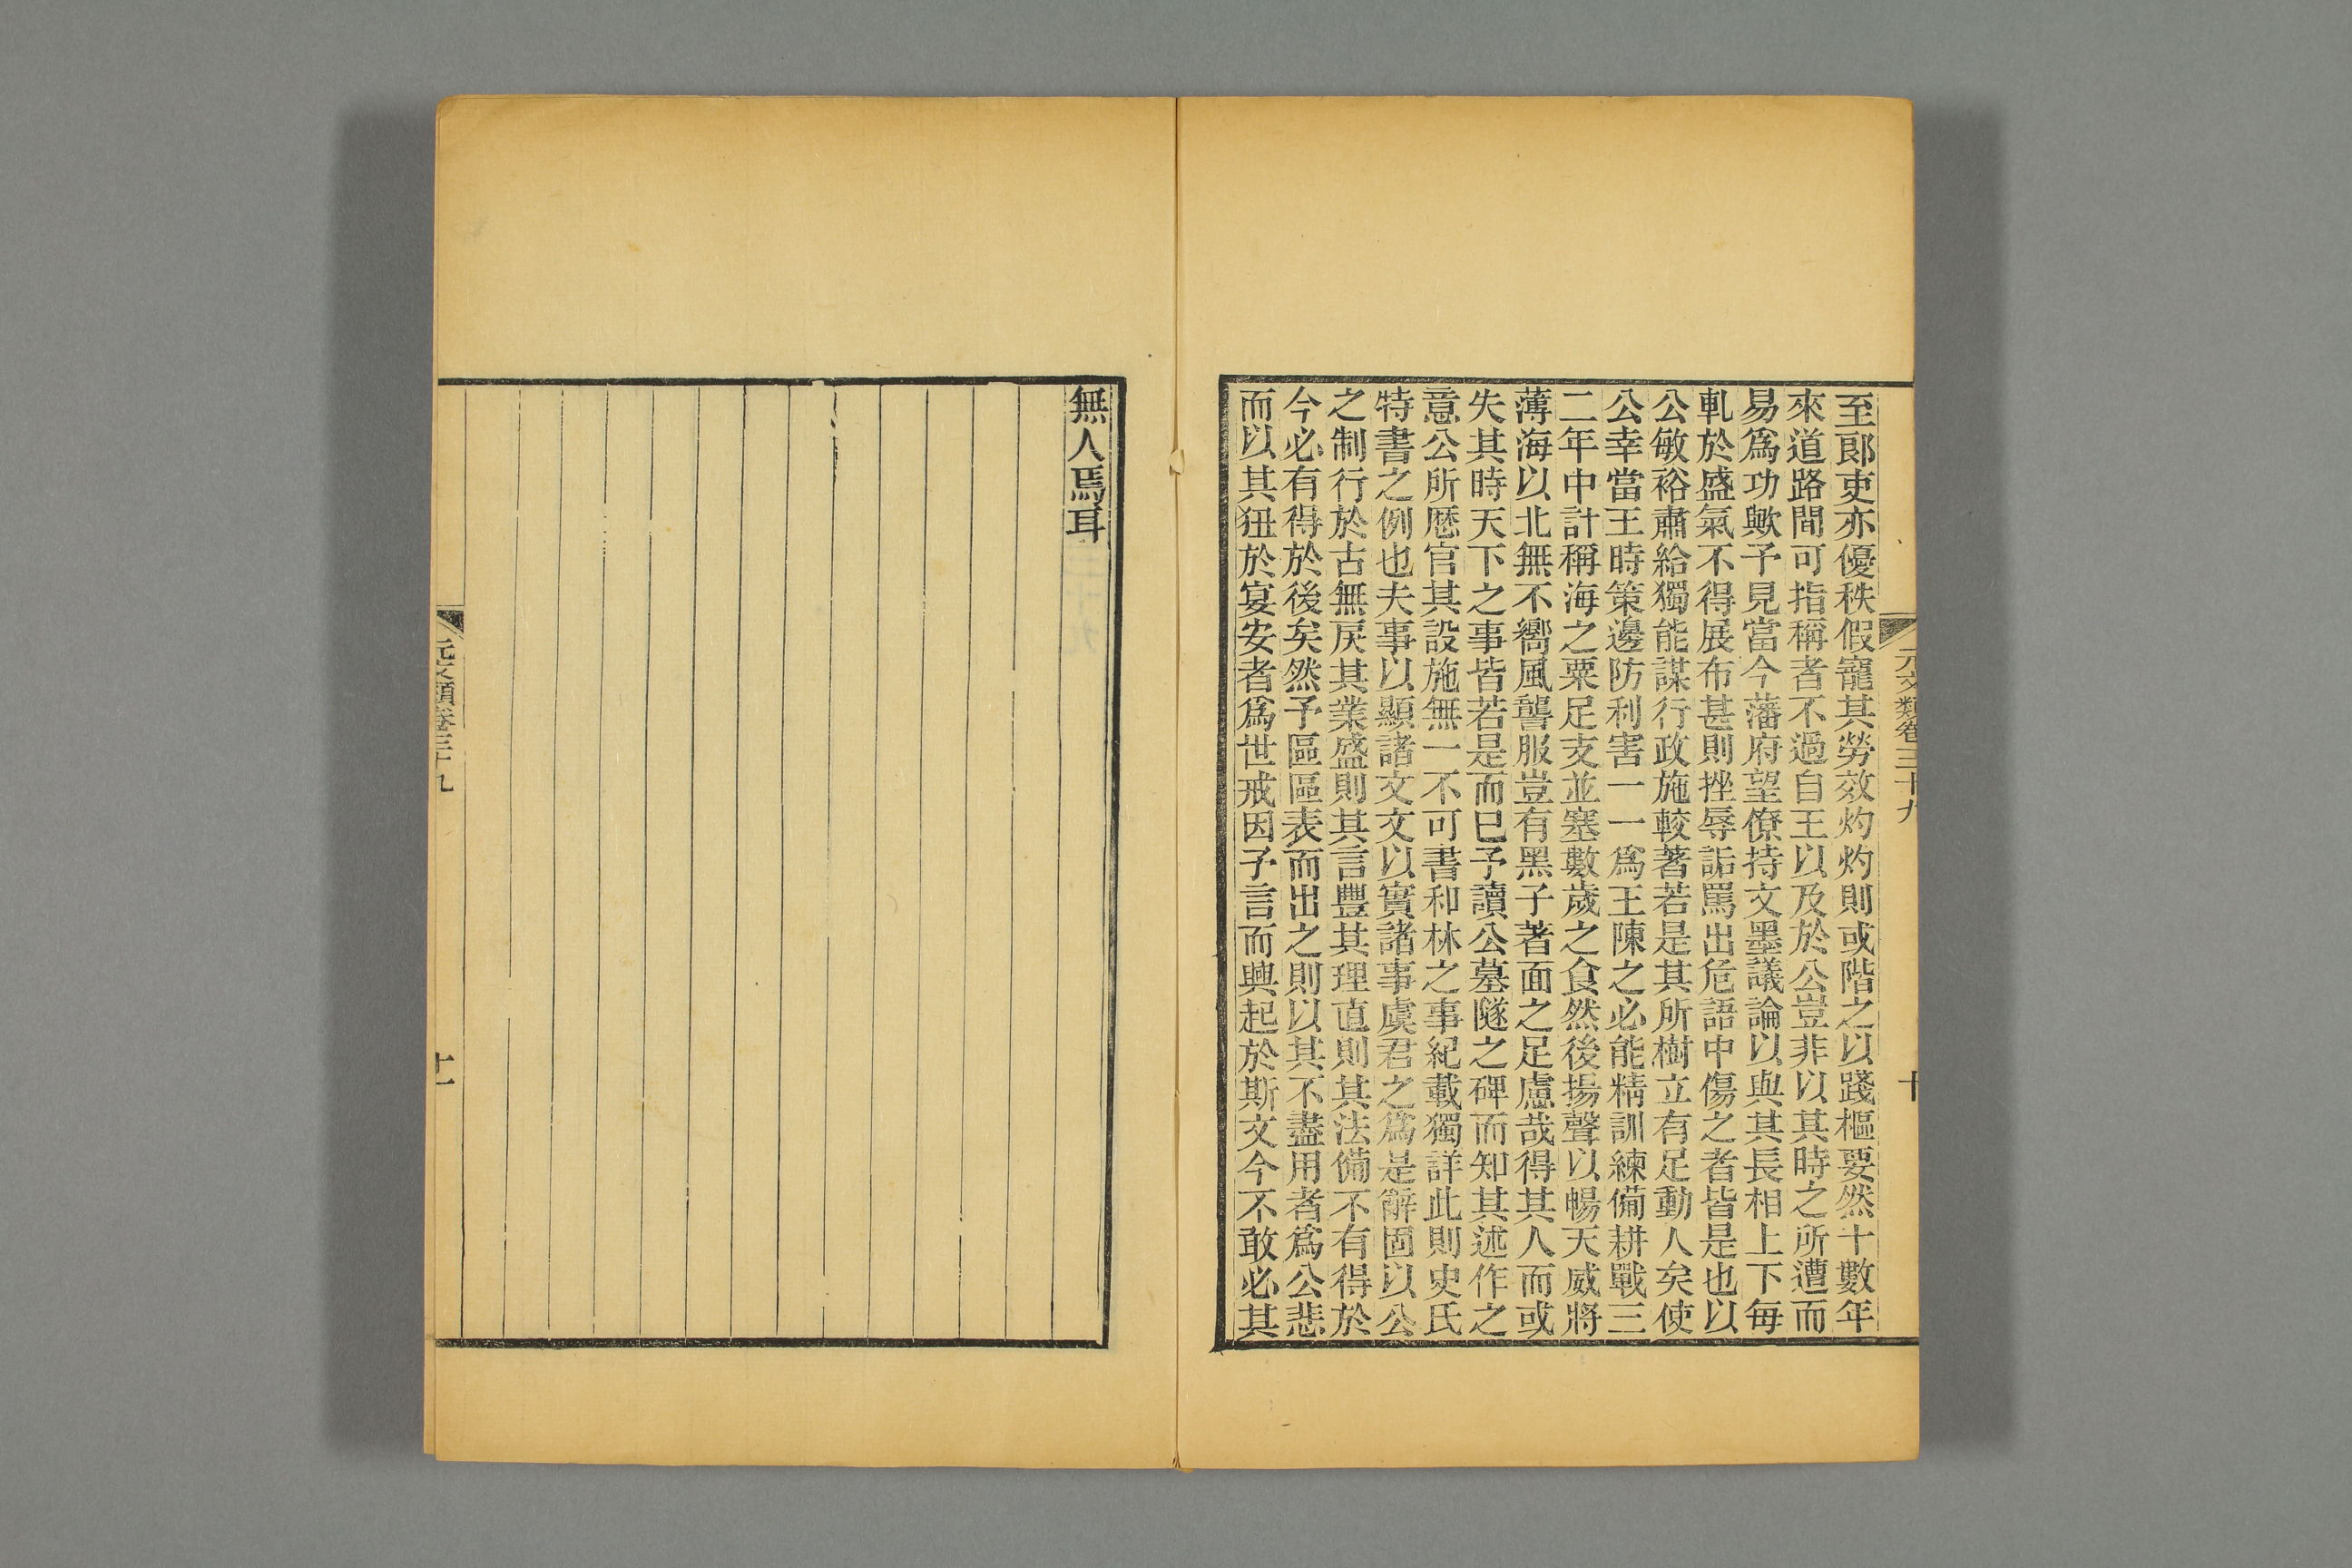 元文類卷三十九
十
至郞吏亦優秩假寵其勞效灼灼則或階之以踐樞要然十數年
來道路間可指稱者不過自王以及於公豈非以其時之所遭而
易爲功歟予見當今藩府望僚持文墨議論以與其長相上下每
軋於盛氣不得展布甚則挫辱詬罵出危語中傷之者皆是也以
公敏裕肅給獨能謀行政施較著若是其所樹立有足動人矣使
公幸當王時策邊防利害一一爲王陳之必能精訓練備耕戰三
二年中計稱海之粟足支並塞數歲之食然後揚聲以暢天威將
薄海以北無不嚮風讋服豈有黑子著面之足慮哉得其人而或
失其時天下之事皆若是而已予讀公墓隧之碑而知其述作之
意公所歴官其設施無一不可書和林之事紀載獨詳此則史氏
特書之例也夫事以顯諸文文以實諸事虞君之爲是辭固以公
之制行於古無戾其業盛則其言豐其理直則其法備不有得於
今必有得於後矣然予區區表而出之則以其不盡用者爲公悲
而以其狃於宴安者爲世戒因予言而興起於斯文今不敢必其
無人焉耳
元文類卷三十九
十一